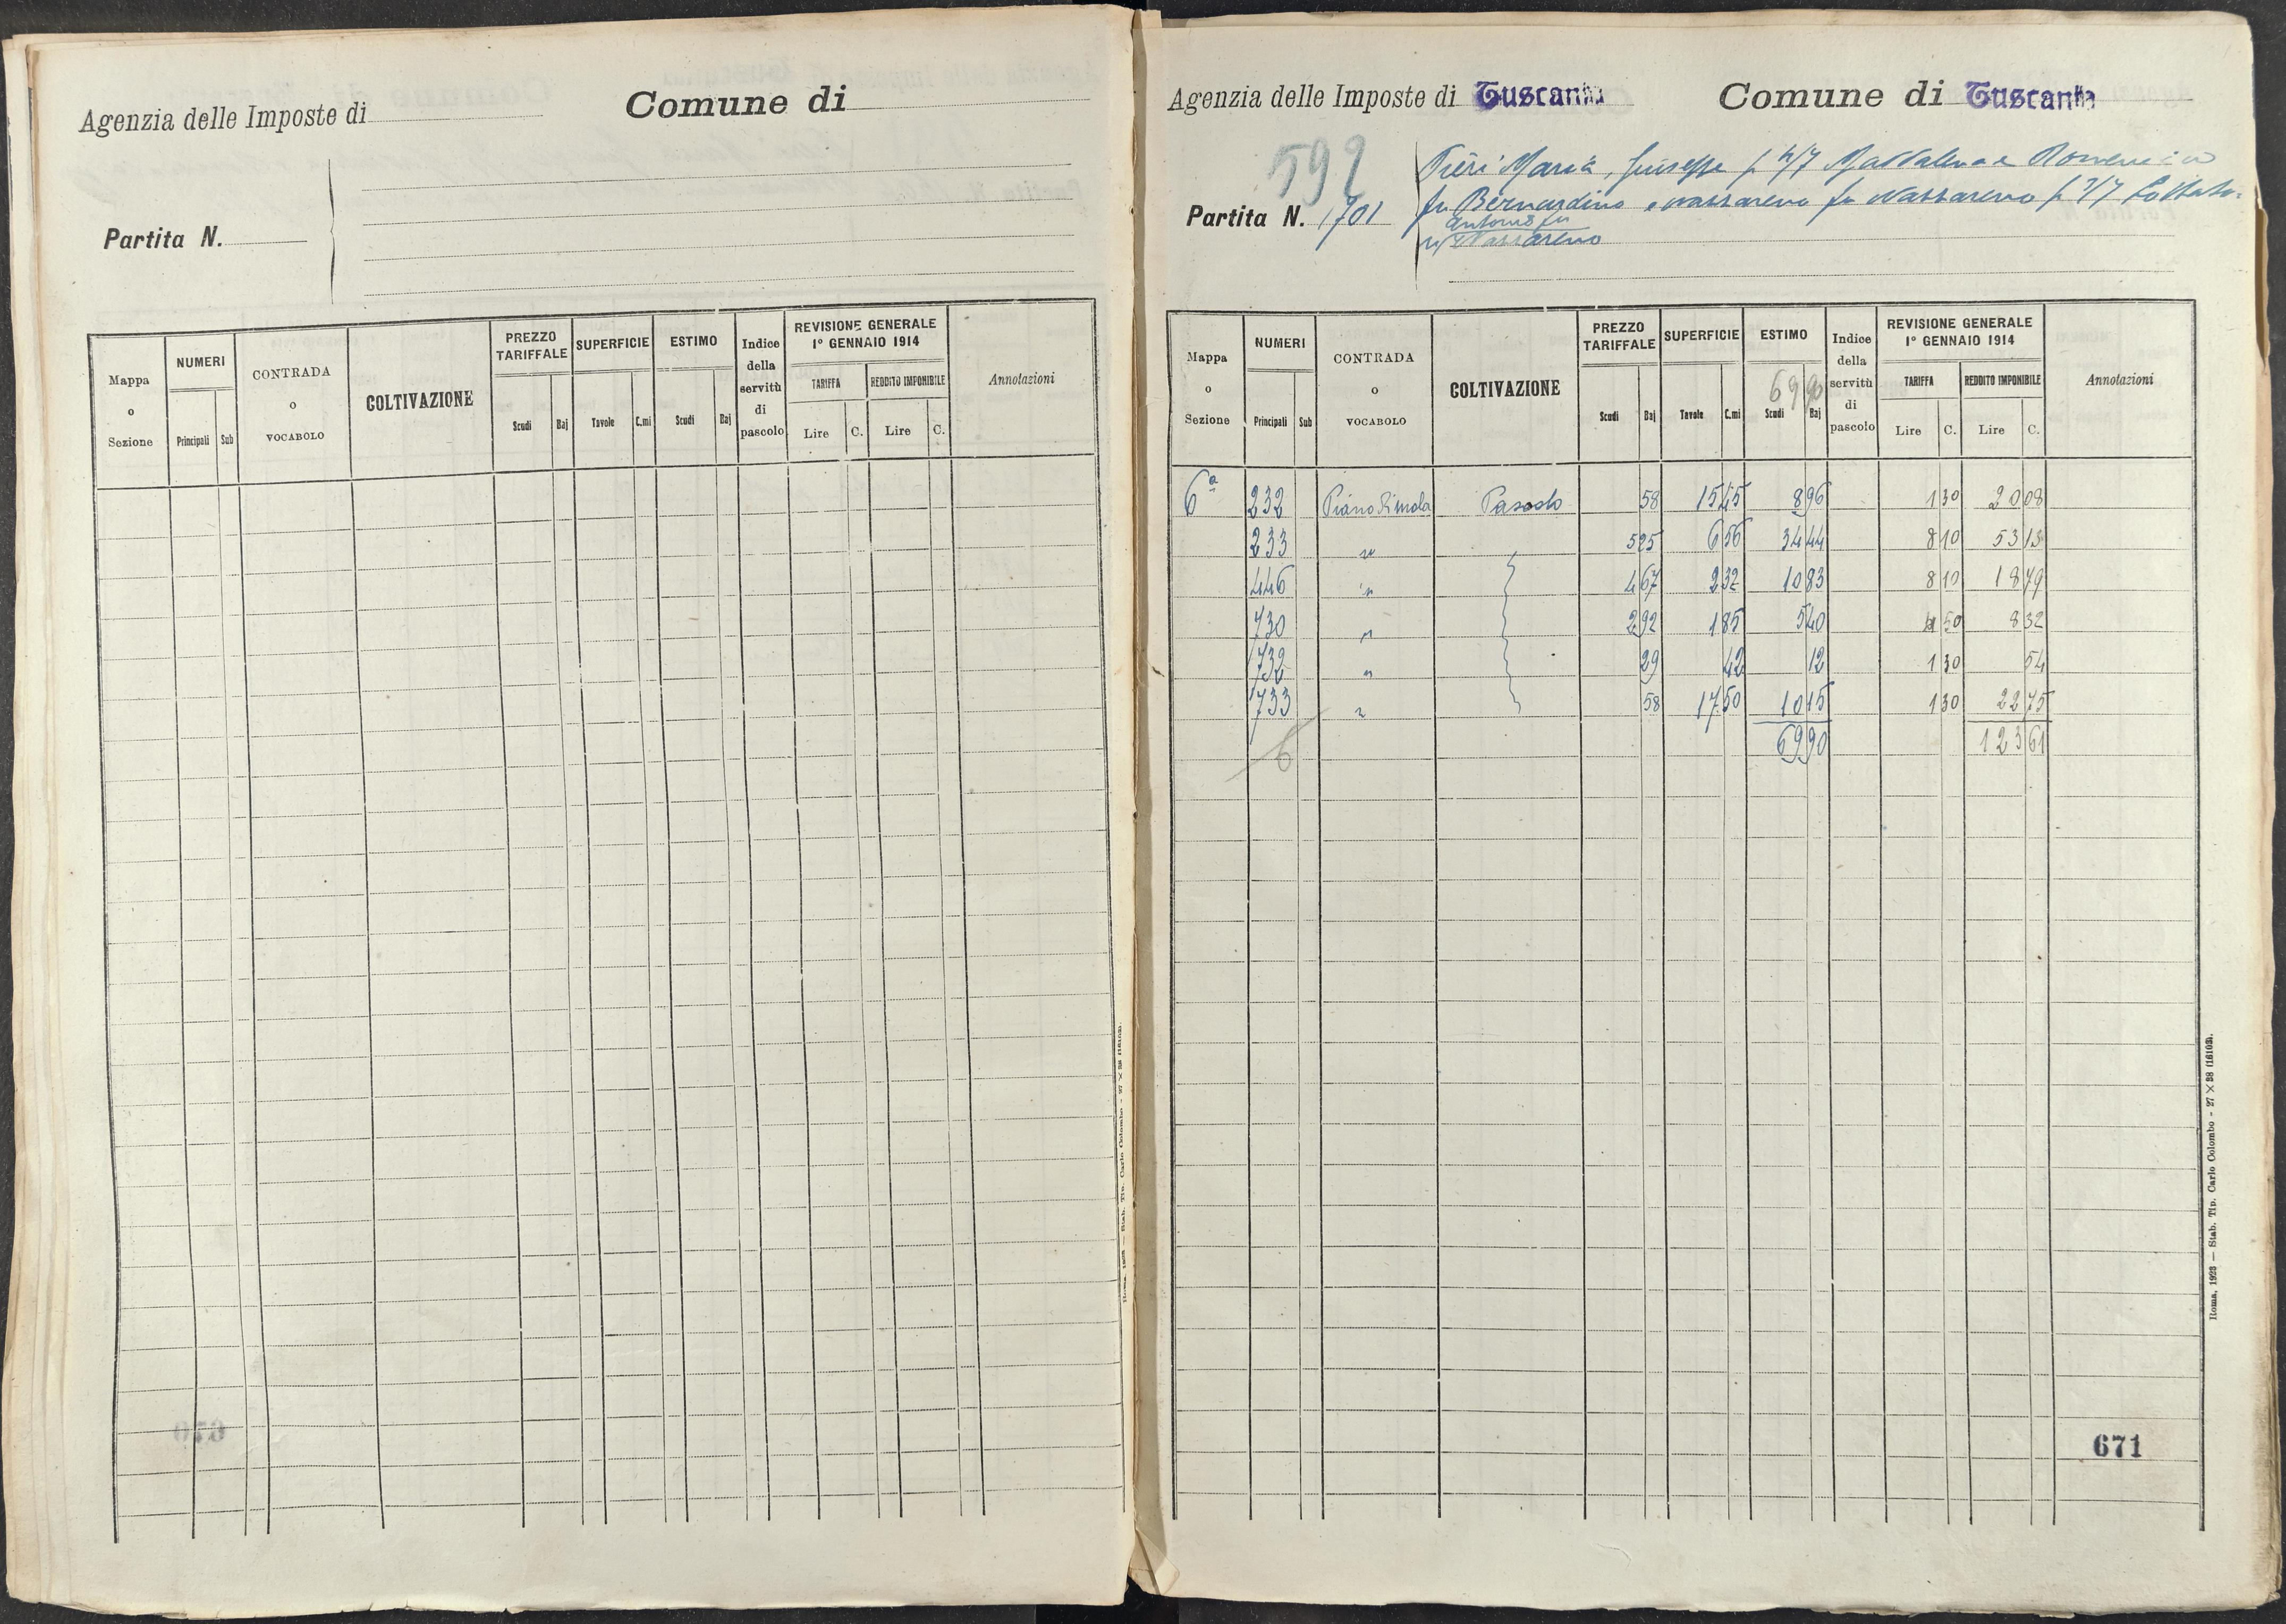 Agenzia delle Imposte di
Comune di
Partita N.
Mappa o Sezione
NUMERI
Principali Sub
CONTRADA o VOCABOLO
COLTIVAZIONE
PREZZO TARIFFALE
Scudi Baj
SUPERFICIE
Tavole C.mi
ESTIMO
Scudi Baj
Indice della servitù di pascolo
REVISIONE GENERALE
1º GENNAIO 1914
TARIFFA REDDITO IMPONIBILE
Lire C. Lire C.
Annotazioni
670
Agenzia delle Imposte di Tuscania
Comune di Tuscania
592
Partita N. 1701
Pieri Maria, Giuseppe p 4/7 Maddalena e Domenico
fu Bernardino e Nazzareno fu Nazzareno p 3/7
Antonio fu
Nazzareno
Mappa o Sezione
NUMERI
Principali Sub
CONTRADA o VOCABOLO
COLTIVAZIONE
PREZZO TARIFFALE
Scudi Baj
SUPERFICIE
Tavole C.mi
ESTIMO
69 90
Scudi Baj
Indice della servitù di pascolo
REVISIONE GENERALE
1º GENNAIO 1914
TARIFFA REDDITO IMPONIBILE
Lire C. Lire C.
Annotazioni
6ª 232 Piano di mola Pascolo 58 15 45 8 96 1 30 20 08
233 " 5 25 6 56 34 44 8 10 53 13
446 " 4 67 2 32 10 83 8 10 18 79
730 " 2 92 1 85 5 40 4 50 8 32
732 " 29 42 12 1 30 54
733 " 58 17 50 10 15 1 30 22 75
6 69 90 123 61
671
Roma, 1923 — Stab. Tip. Carlo Colombo - 27 × 38 (16102).